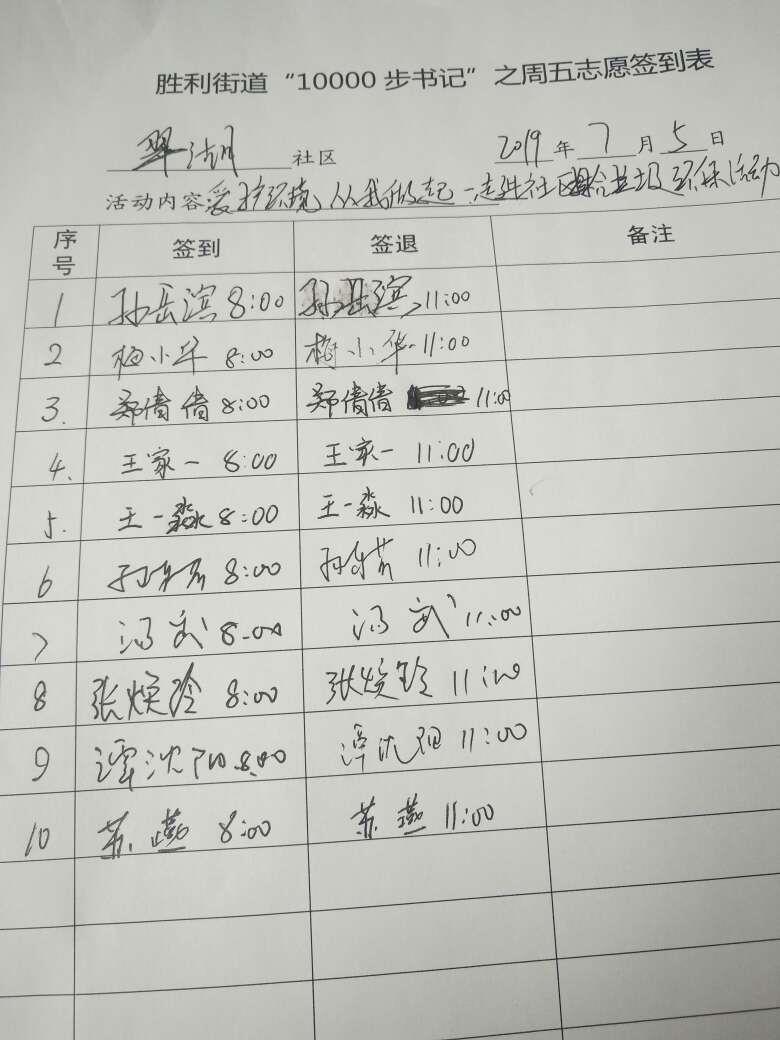 胜利街道“10000步书记”之周五志愿签到表
翠湖社区 2019年7月5日
活动内容 爱护环境从我做起 一走进社区捡拾垃圾环保活动
序号 签到 签退 备注
1 孙岳滨 8:00 孙岳滨 11:00
2 梅小华 8:00 梅小华 11:00
3. 郑倩倩 8:00 郑倩倩 11:00
4. 王家一 8:00 王家一 11:00
5. 王一淼 8:00 王一淼 11:00
6 孙 8:00 孙 11:00
7 冯武 8:00 冯武 11:00
8 张焕玲 8:00 张焕玲 11:00
9 谭沈阳 8:00 谭沈阳 11:00
10 苏燕 8:00 苏燕 11:00